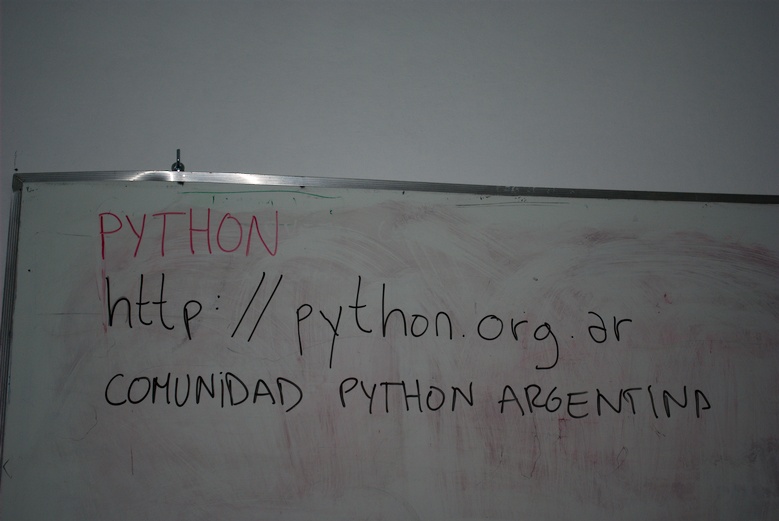 PYTHON
http://python.org.ar
COMUNiDAD PYTHON ARGENTINA